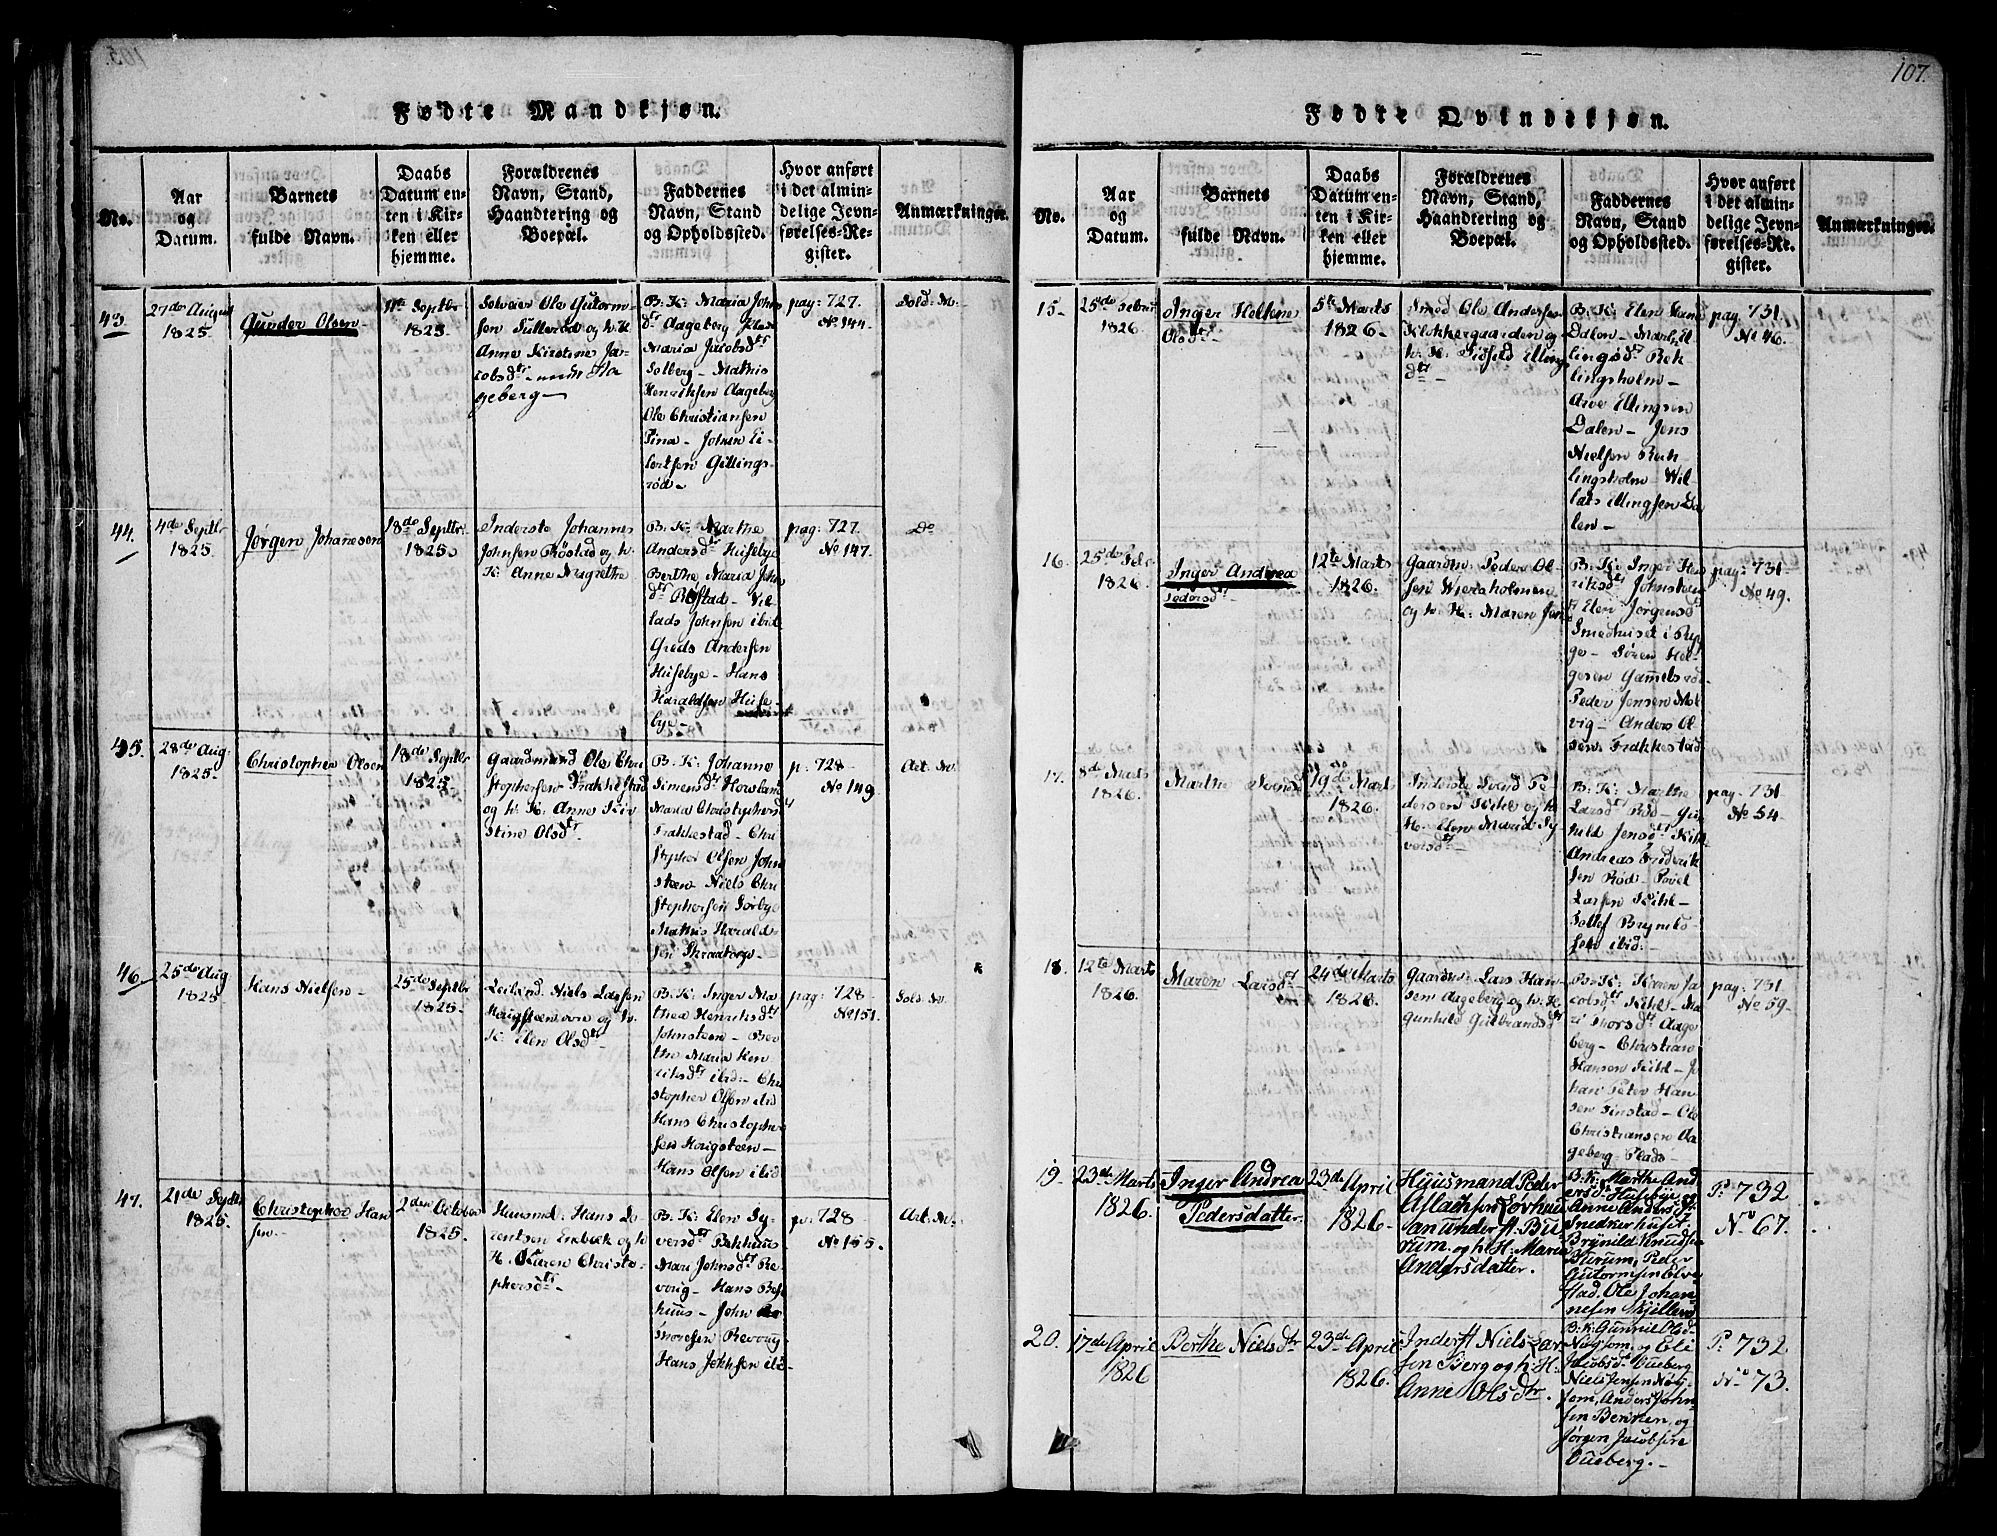 107.
Fødte Mandkjøn.
No.
Aar
og
Datum.
Barnets
fulde Navn.
Daabs
Datum en-
ten i Kir-
ken eller
hjemme.
Forældrenes
Navn, Stand,
Haandtering og
Boepæl.
Faddernes
Navn, Stand
og Opholdssted.
Hvor anført
i det almin-
delige Jevn-
førelses-Re-
gister.
Anmærkninger.
43.
27de August
1825.
Gunder Olsen
11te Septbr
1825.
Ole Gutorm-
sen
Anne Kirstine Ja-
cobsdtr
geberg
B: K: Maria Johns
dtr Aageberg
Maria Jacobsdtr
Solberg - Mathis
Henriksen Aageberg
Ole Christiansen
rød -
pag: 727.
No 144.
Sold: N.
44.
4de Septbr
1825.
Jørgen Johanesen
18de Septbr
1825.
Inderste Johannes
Johnsen Røstad og h.
K: Anne Magrethe
B: K: Marthe
Andersdtr Husebye
Berthe Maria John
dtr Røstad - Vil-
lads Johnsen ibid
Andersen
Husebye - Hans
Haraldsen Huse-
bye -
pag: 727.
No 147.
Do
45.
28de Aug:
1825.
Christopher Olsen
18de Septbr
1825
Gaardmand Ole Chri
stophersen Frakkestad
og h. K: Anne Kir
stine Olsdtr
B: K: Johanne
Simensdtr
Maria Christophersd
Frakkestad - Chri
stopher Olsen John
steen Niels Chri
stophersen Sørbye
Mathis Harald-
sen
p: 728-
No 149.
Akt. N.
46.
25de Aug
1825
Hans Nielsen
25de Septbr
1825.
Leilænd. Niels Larsen
Haugsteen og h.
K: Elen Olsdtr
B: K: Inger Ma
thea Henriksdtr
Johnsteen - Ber
the Maria Hen
riksdtr ibid: - Chri
stopher Olsen ibid
Hans Christopher
sen Haugsteen -
Hans Olsen ibid
pag: 728-
No 151.
Sold. N.
47.
21de Septbr
1825.
Christopher Han
sen -
2den October
1825.
Huusmd: Hans Lo
rentsen Enebek og h
K: Karen Christo
phersdtr
B: K: Elen Sy-
versdtr Bakhuus
Mari Johnsdtr Re-
voug - Hans Bak
huus - John
Thoresen Revoug
Hans Johnsen ibi
p: 728-
No 155.
Akt. N.
Fødte Qvindekjøn.
No.
Aar
og
Datum.
Barnets
fulde Navn.
Daabs
Datum en-
ten i Kir-
ken eller
hjemme.
Forældrenes
Navn, Stand,
Haandtering og
Boepæl.
Faddernes
Navn, Stand
og Opholdssted.
Hvor anført
i det almin-
delige Jevn-
førelses-Re-
gister.
Anmærkninger.
15.
25de Febru
1826
Inger Helene
Olsdtr
5te Marts
1826.
Smed Ole Andersen
Klokkergaarden og
h. K: Sidsel Elling
dtr
B: K: Elen
Dalen - Mari El-
lingsdtr Rek
lingsholm -
Arve Ellingsen
Dalen - Jens
Nielsen Rek
lingsholm - Wil-
lats Ellingsen Da
len -
pag. 731
No 46.
16.
25de Feb
1826
Inger Andrea
Pedersdtr
12te Marts
1826.
Gaardm. Peder Ol
sen Wierøholmen
og h. K: Maren Jen
B: K: Inger Hen
riksdtr Johnsteen
Elen Jørgensdtr
Smedhuset i Ryg
ge - Søren Hel-
gesen Gamelsrød
Peder Jensen
vig - Anders Ol
sen Frakkestad
pag: 731
No 49.
17.
8de Marts
1826.
Marthe
19de Marts
1826.
Inderste Pe-
dersen Kihl og h.
K. Elen Maria Sy
versdtr
B: K: Marthe
Larsdtr Rød - Gu
hild Jensdtr Kihl
Andreas Frederik
sen Rød - Povel
Larsen Kihl -
Tollef Brynild
sen ibid: -
pag: 731
No 54-
18.
12te Marts
1826.
Maren Larsdtr
24de Marts
1826.
Gaardm: Lars Han
sen Aageberg og h. K
Gunhild Gulbrandsdtr
B: K: Karen Ja
cobsdtr Kihl - Ma
ri Thorsdtr Aage
berg - Christian
Hansen Kihl - Jo
han Peter Han
sen Finstad - Ole
Christiansen Aa
geberg Plads -
pag: 731
No 59-
19-
23de Marts
1826.
Inger Andrea
Pedersdatter.
23de April
1826-
Huusmand Peder
Aslachsen Sørhuu
san under H. Bu
rum. og h. K: Maria
Andersdatter.
B: K: Marthe And
ersd. Husebye, og
Anne Andersdtr
Snedkerhuset.
Brynild Knudsen
Burum, Peder
Gutormsen Elve
stad. Ole Johan
nesen Skjellerød
P: 732
No 67.
20.
17de April
1826
Berthe Nielsdtr
23de April
1826.
Inderst Niels Lar
sen Berg og h: K.
Anne Olsdtr.
B: K: Gunnil Olsd.
og Eli
Jacobsd. Oueberg
Niels Jensen
Anders John
sen Berkken, og
Jørgen Jacobsen
Oueberg. -
P: 732
No 73.